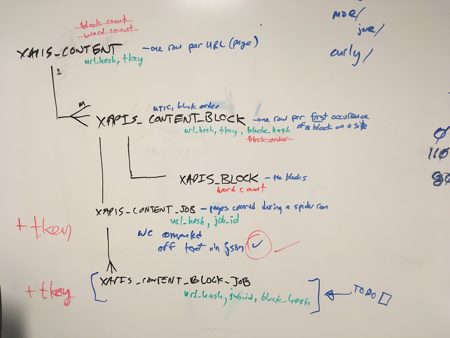 block count
word count
moe/
joe/
curly/
XAPIS_CONTENT - one row per URL (page)
url_hash, tkey
1
M
block order
XAPIS_CONTENT_BLOCK - one row per first occurrence
of a block on a site
url_hash, tkey, block_hash
block-order
XAPIS_BLOCK - the blocks
word count
XAPIS_CONTENT_JOB - pages covered during a spider run
url_hash, job_id
+ tkey
WC computed
off text in json
XAPIS_CONTENT_BLOCK_JOB
+ tkey
url_hash, job_id, block_hash
TODO